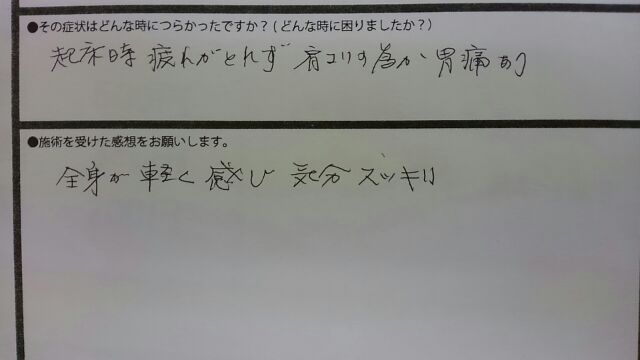 ●その症状はどんな時につらかったですか？(どんな時に困りましたか？)
起床時 疲れがとれず 肩コリの為か 胃痛あり
●施術を受けた感想をお願いします。
全身が 軽く 感じ 気分 スッキリ